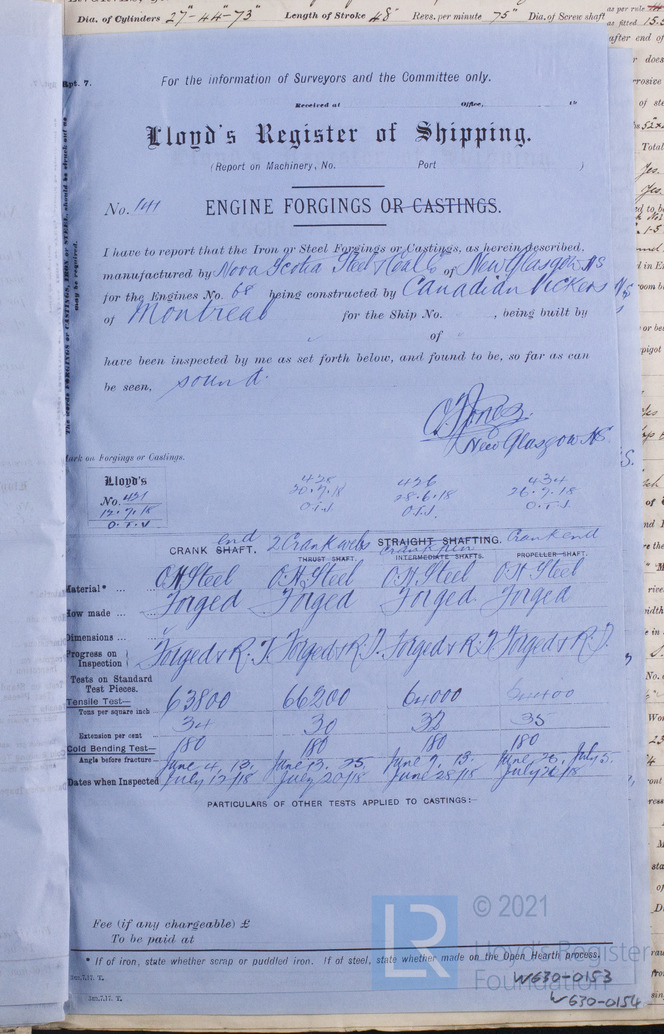 Dia. of Cylinders 27"-44"-73" Length of Stroke 48" Revs. per minute 75" Dia. of Screw shaft as per rule
as fitted 15.5
after end of
Rpt. 7.
For the information of Surveyors and the Committee only.
Received at Office, 19
Lloyd's Register of Shipping.
(Report on Machinery, No. Port )
No. 141 ENGINE FORGINGS OR CASTINGS.
The words FORGINGS or CASTINGS, IRON or STEEL, should be struck out as may be required.
I have to report that the Iron or Steel Forgings or Castings, as herein described,
manufactured by Nova Scotia Steel & Coal Co of New Glasgow NS
for the Engines No. 68 being constructed by Canadian Vickers
of Montreal for the Ship No. , being built by
of
have been inspected by me as set forth below, and found to be, so far as can
be seen, sound.
New Glasgow NS.
Mark on Forgings or Castings.
Lloyd's
No. 421
12.7.18
428
20.7.18
426
28.6.18
434
26.7.18
CRANK SHAFT. end 2 Crank webs THRUST SHAFT. STRAIGHT SHAFTING. Crank pin INTERMEDIATE SHAFTS. Crank end PROPELLER SHAFT.
Material* ... O.H Steel O.H. Steel O.H. Steel O.H Steel
How made ... Forged Forged Forged Forged
Dimensions ...
Progress on Inspection Forged & R.T. Forged & R.T. Forged & R.T. Forged & R.T.
Tests on Standard Test Pieces.
Tensile Test— Tons per square inch 63800 66200 64000
Extension per cent 34 30 32 35
Cold Bending Test— Angle before fracture 180 180 180 180
Dates when Inspected June 4, 13, July 12/18 June 13, 25 July 20/18 June 7, 13, June 28/18 June 26, July 5, July 26/18
PARTICULARS OF OTHER TESTS APPLIED TO CASTINGS:—
Fee (if any chargeable) £
To be paid at
* If of iron, state whether scrap or puddled iron. If of steel, state whether made on the Open Hearth process.
© 2021
LR
Lloyd's Register
Foundation
W630-0153
W630-0154